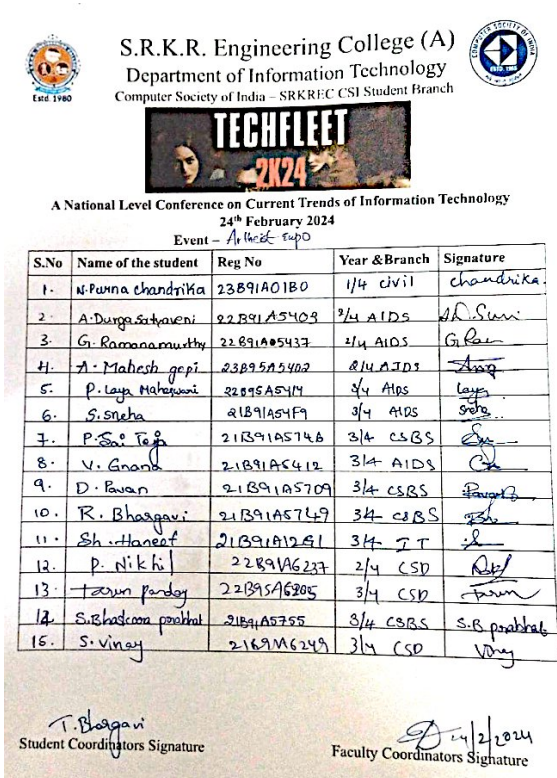 S.R.K.R. Engineering College (A)
Department of Information Technology
Computer Society of India – SRKREC CSI Student Branch
Estd. 1980
COMPUTER SOCIETY OF INDIA
ESTD. 1965
TECHFLEET
2K24
A National Level Conference on Current Trends of Information Technology
24th February 2024
Event – Expo
S.No Name of the student Reg No Year &Branch Signature
1. N.Purna chandrika 23B91A01B0 1/4 civil chandrika.
2. A.Durga Satyaveni 22B91A5403 2/4 AIDS
3. G. Ramanamurthy 22B91A05437 2/4 AIDS G Ram
4. A. Mahesh gopi 23B95A5402 2/4 AIDS
5. P. Laya Maheswari 22B95A5414 3/4 AIDS Laya
6. S.sneha 21B91A54F9 3/4 AIDS Sneha
7. P.Sai Teja 21B91A5746 3/4 CSBS
8. V. Gnana 21B91A5412 3/4 AIDS
9. D. Pavan 21B91A5709 3/4 CSBS
10. R. Bhargavi 21B91A5749 3/4 CSBS
11. Sh. Haneef 21B91A1291 3/4 IT
12. P. Nikhil 22B91A6237 2/4 CSD
13. tarun pandey 22B95A6205 3/4 CSD Tarun
14. S.Bhaskara prabhat 21B91A5755 3/4 CSBS S.B prabhat
15. S. Vinay 21B91A6249 3/4 CSD Vinay
T. Bhargavi
24/2/2024
Student Coordinators Signature
Faculty Coordinators Signature